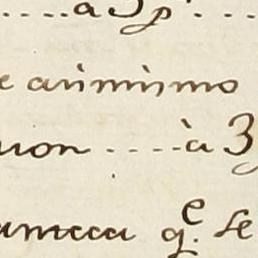 .....a 3 p ....
e asimismo
uon .....à 3
ameca q.e se